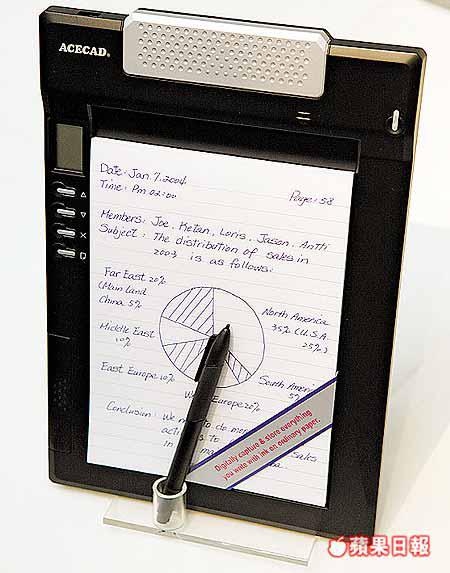 ACECAD®
Date: Jan. 7. 2004
Time: Pm 02:00
Page: 58
Members: Joe, Ketan, Loris, Jason, Antti
Subject: The distribution of sales in
2003 is as follows:
Far East 20%
(Main land
China 5%
Middle East
10%
East Europe 10%
North America
35% (U.S.A
25%)
South America
5%
Europe 20%
Conclusion: We need to do
to
in
Sales
Digitally capture & store everything
you write with ink on ordinary paper.
蘋果日報